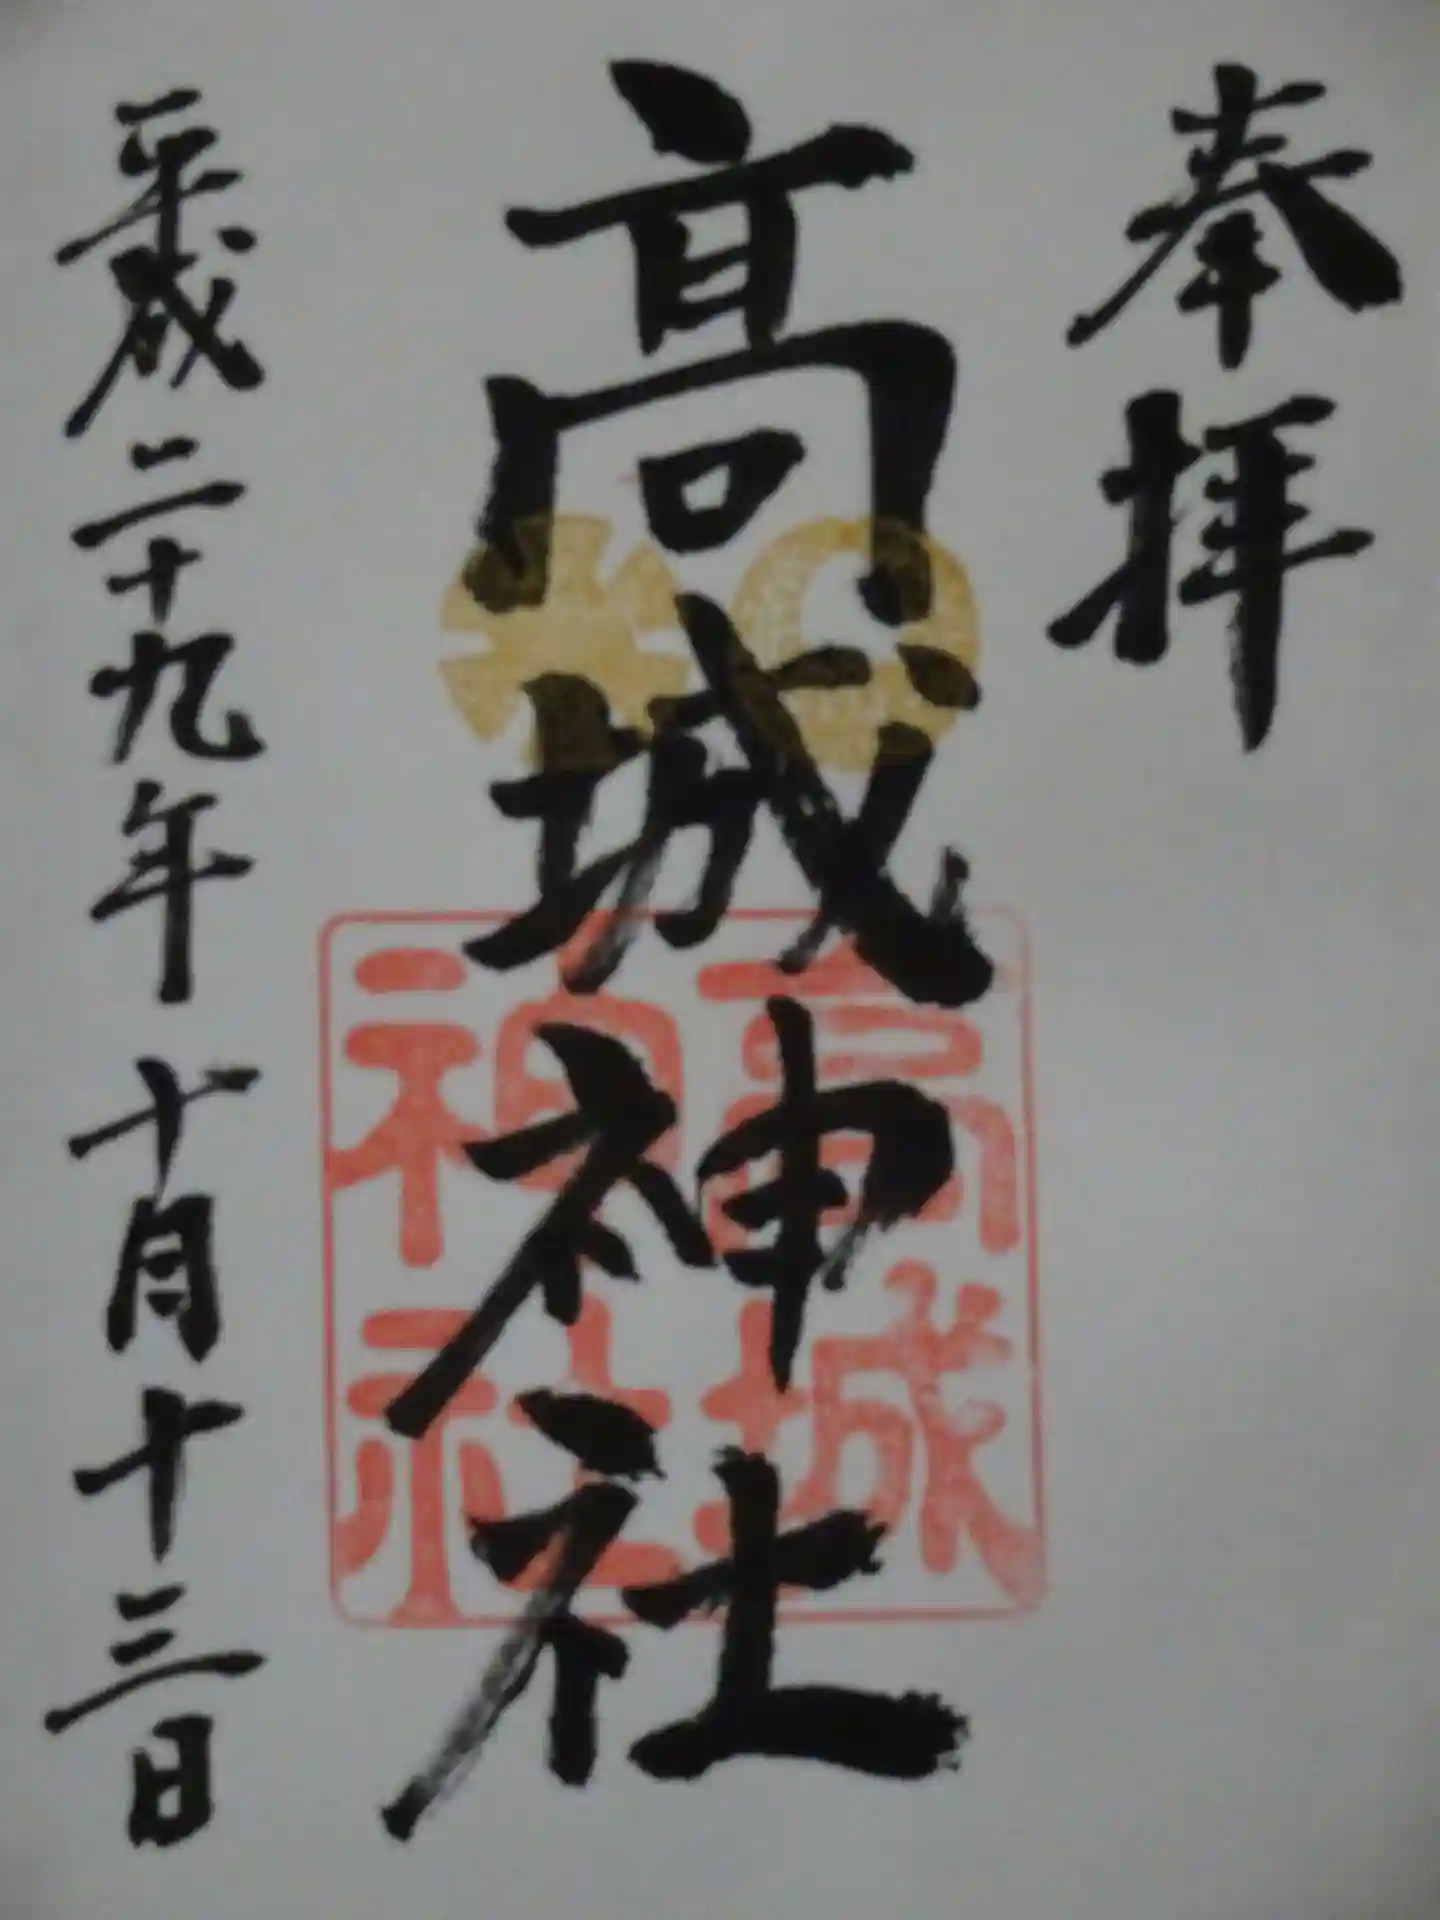 奉拝
髙城神社
高城
神社
平成二十九年十月十三日